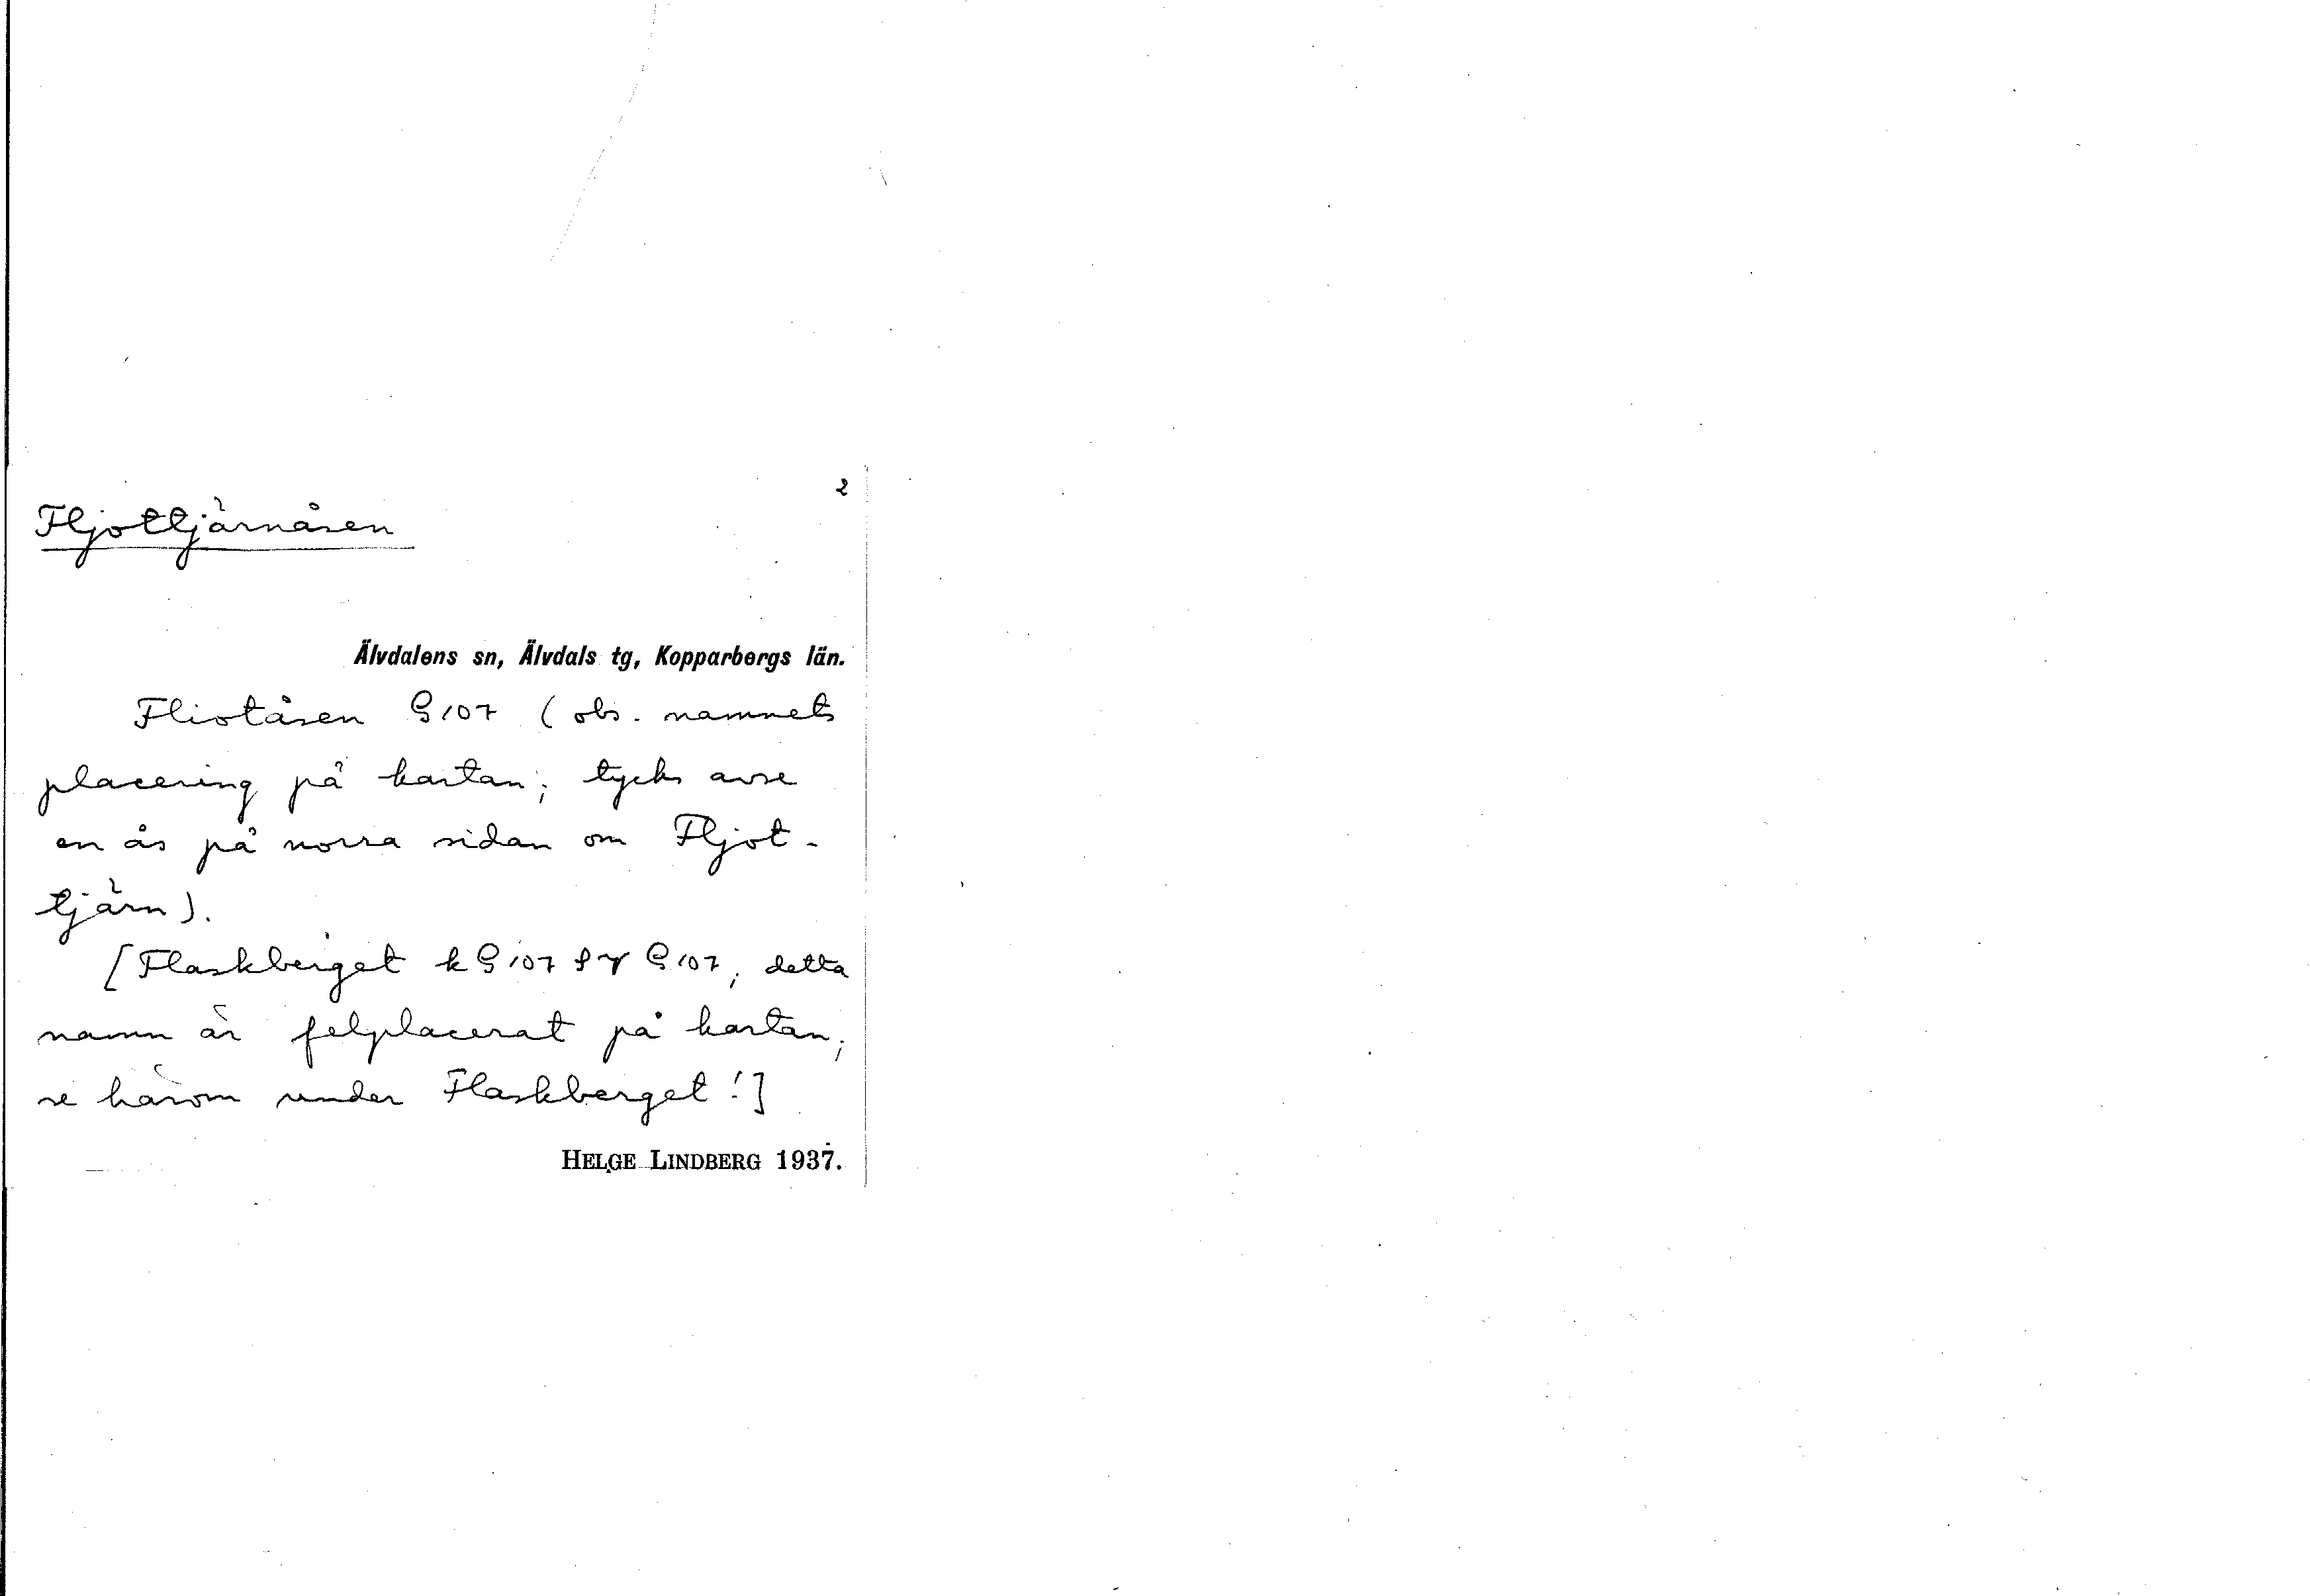 2
Fljottjärnåsen
Älvdalens sn, Älvdals tg, Kopparbergs län.
Fliotåsen G107 (obs. namnets
placering på kartan; tycks avse
en ås på norra sidan om Fljot-
tjärn).
[Flaskberget k G107 G107; detta
namn är felplacerat på kartan;
se härom under Flaskberget!]
HELGE LINDBERG 1937.